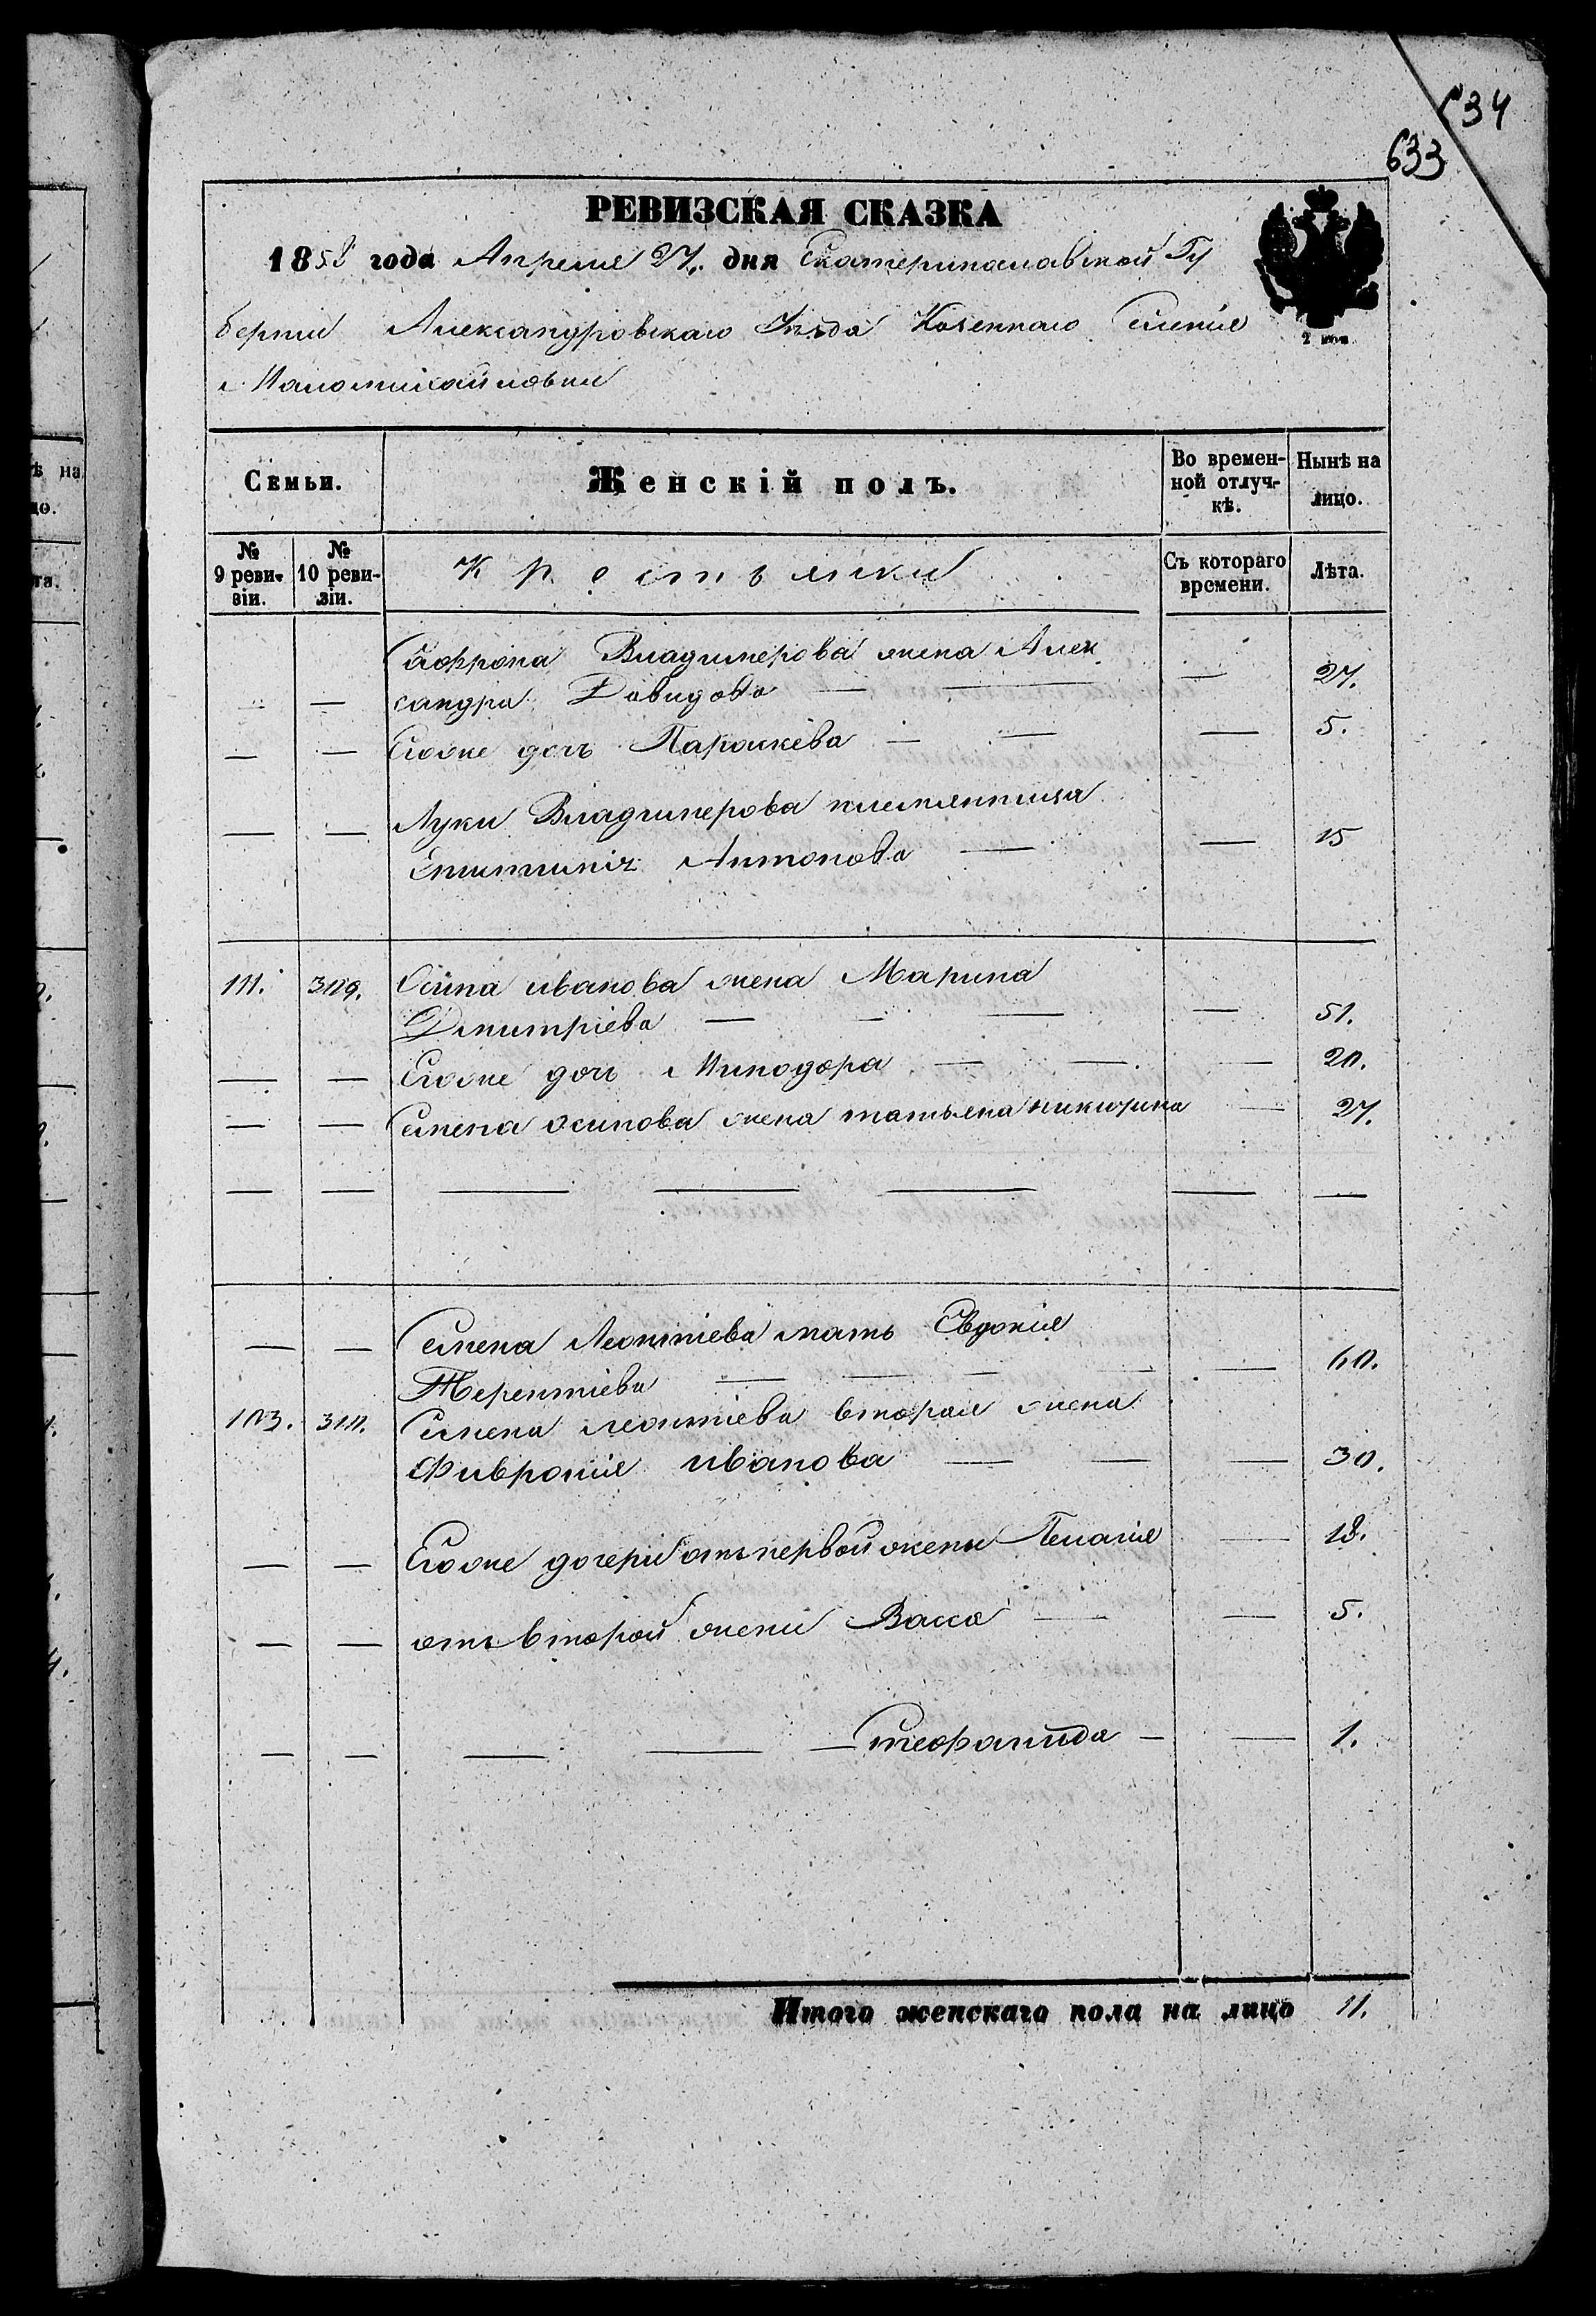 634
633
РЕВИЗСКАЯ СКАЗКА
1858 года Апреля 27. дня Екатеринославской Гу
берніи Александровскаго Уѣзда Козеннаго Селенія
Маломихайловки
2 коп.
Семьи. Женскій полъ. Во времен-ной отлуч-кѣ. Нынѣ на лицо.
№ 9 реви-зіи. № 10 реви-зіи. Крестьянки Съ котораго времени. Лѣта.
Сафрона Владимерова жена Алек
сандра Давидова — — — 27.
— — Егоже дочь Параскева — — — 5.
— — Луки Владимерова племянница
Антонова — — 15
111. 309. Осипа иванова жена Марина
Дмитріева — — — — 51.
— — Егоже дочь Минодора — — — 20.
— — Семена осипова жена татьяна никитина — 27.
— — — — — — —
— — Семена Леонтіева мать Евдокія
Терентіева — — — — — 60.
103. 310. Семена леонтіева вторая жена
Фивронія иванова — — — 30.
— — Егоже дочери отъ первой жены Пелагія — 18.
— — отъ второй жены Васса — — 5.
— — — — — Стефанида — — 1.
Итого женскаго пола на лицо 11.
ѣ на
цо.
та.